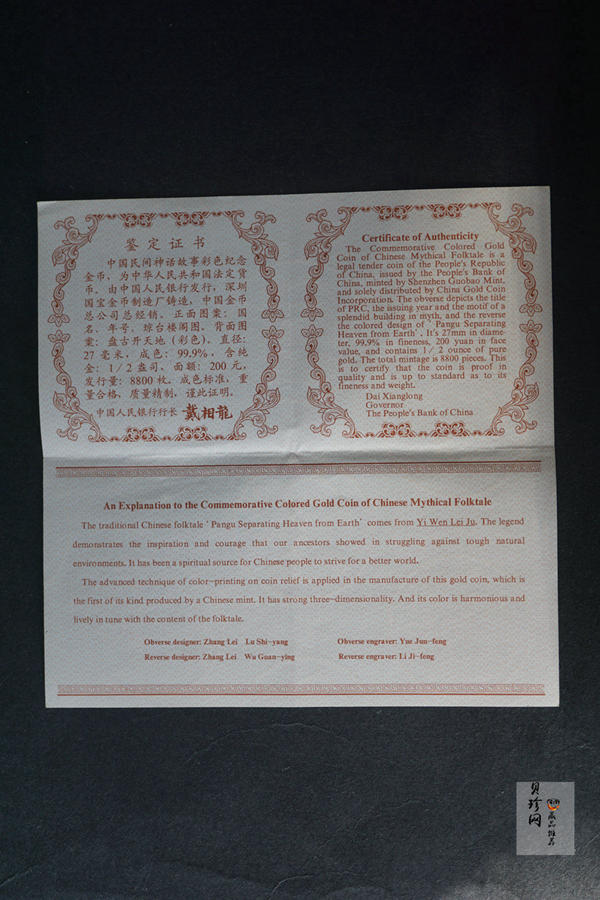 鉴定证书
中国民间神话故事彩色纪念
金币，为中华人民共和国法定货
币。由中国人民银行发行，深圳
国宝金币制造厂铸造，中国金币
总公司总经销。正面图案：国
名、年号、琼台楼阁图。背面图
案：盘古开天地（彩色）。直径：
27毫米，成色：99.9%，含纯
金：1/2盎司，面额：200元，
发行量：8800枚。成色标准，重
量合格，质量精制，谨此证明。
中国人民银行行长 戴相龍
Certificate of Authenticity
The Commemorative Colored Gold
Coin of Chinese Mythical Folktale is a
legal tender coin of the People's Republic
of China, issued by the People's Bank of
China, minted by Shenzhen Guobao Mint,
and solely distributed by China Gold Coin
Incorporation. The obverse depicts the title
of PRC, the issuing year and the motif of a
splendid building in myth, and the reverse
the colored design of ' Pangu Separating
Heaven from Earth'. It's 27mm in diame-
ter, 99.9% in fineness, 200 yuan in face
value, and contains 1/2 ounce of pure
gold. The total mintage is 8800 pieces. This
is to certify that the coin is proof in
quality and is up to standard as to its
fineness and weight.
Dai Xianglong
Governor
The People's Bank of China
An Explanation to the Commemorative Colored Gold Coin of Chinese Mythical Folktale
The traditional Chinese folktale ' Pangu Separating Heaven from Earth' comes from Yi Wen Lei Ju. The legend
demonstrates the inspiration and courage that our ancestors showed in struggling against tough natural
environments. It has been a spiritual source for Chinese people to strive for a better world.
The advanced technique of color-printing on coin relief is applied in the manufacture of this gold coin, which is
the first of its kind produced by a Chinese mint. It has strong three-dimensionality. And its color is harmonious and
lively in tune with the content of the folktale.
Obverse designer: Zhang Lei Lu Shi-yang
Obverse engraver: Yue Jun-feng
Reverse designer: Zhang Lei Wu Guan-ying
Reverse engraver: Li Ji-feng
贝珍网
藏品推荐